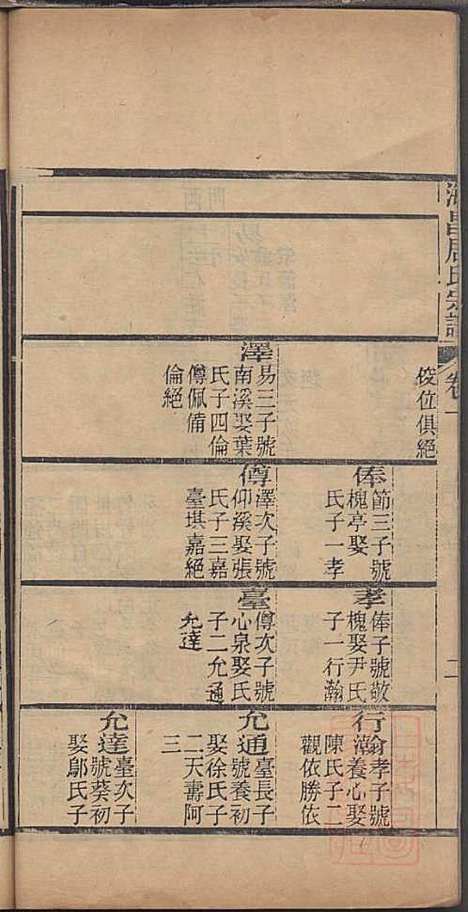 海昌周氏宗譜
卷一
二
俊位俱絕
澤
易三子號
南溪娶葉
氏子四倫
僔佩備
倫絕
俸
節三子號
槐亭娶
氏子一孝
僔
澤次子號
仰溪娶張
氏子三嘉
臺琪嘉絕
孝
俸子號敬
槐娶尹氏
子一行瀚
臺
僔次子號
心泉娶氏
子二允通
允達
行瀚
孝子號
養心娶
陳氏子二
觀依勝依
允通
臺長子
號養初
娶徐氏子
二天壽阿
三
允達
臺次子
號葵初
娶鄔氏子